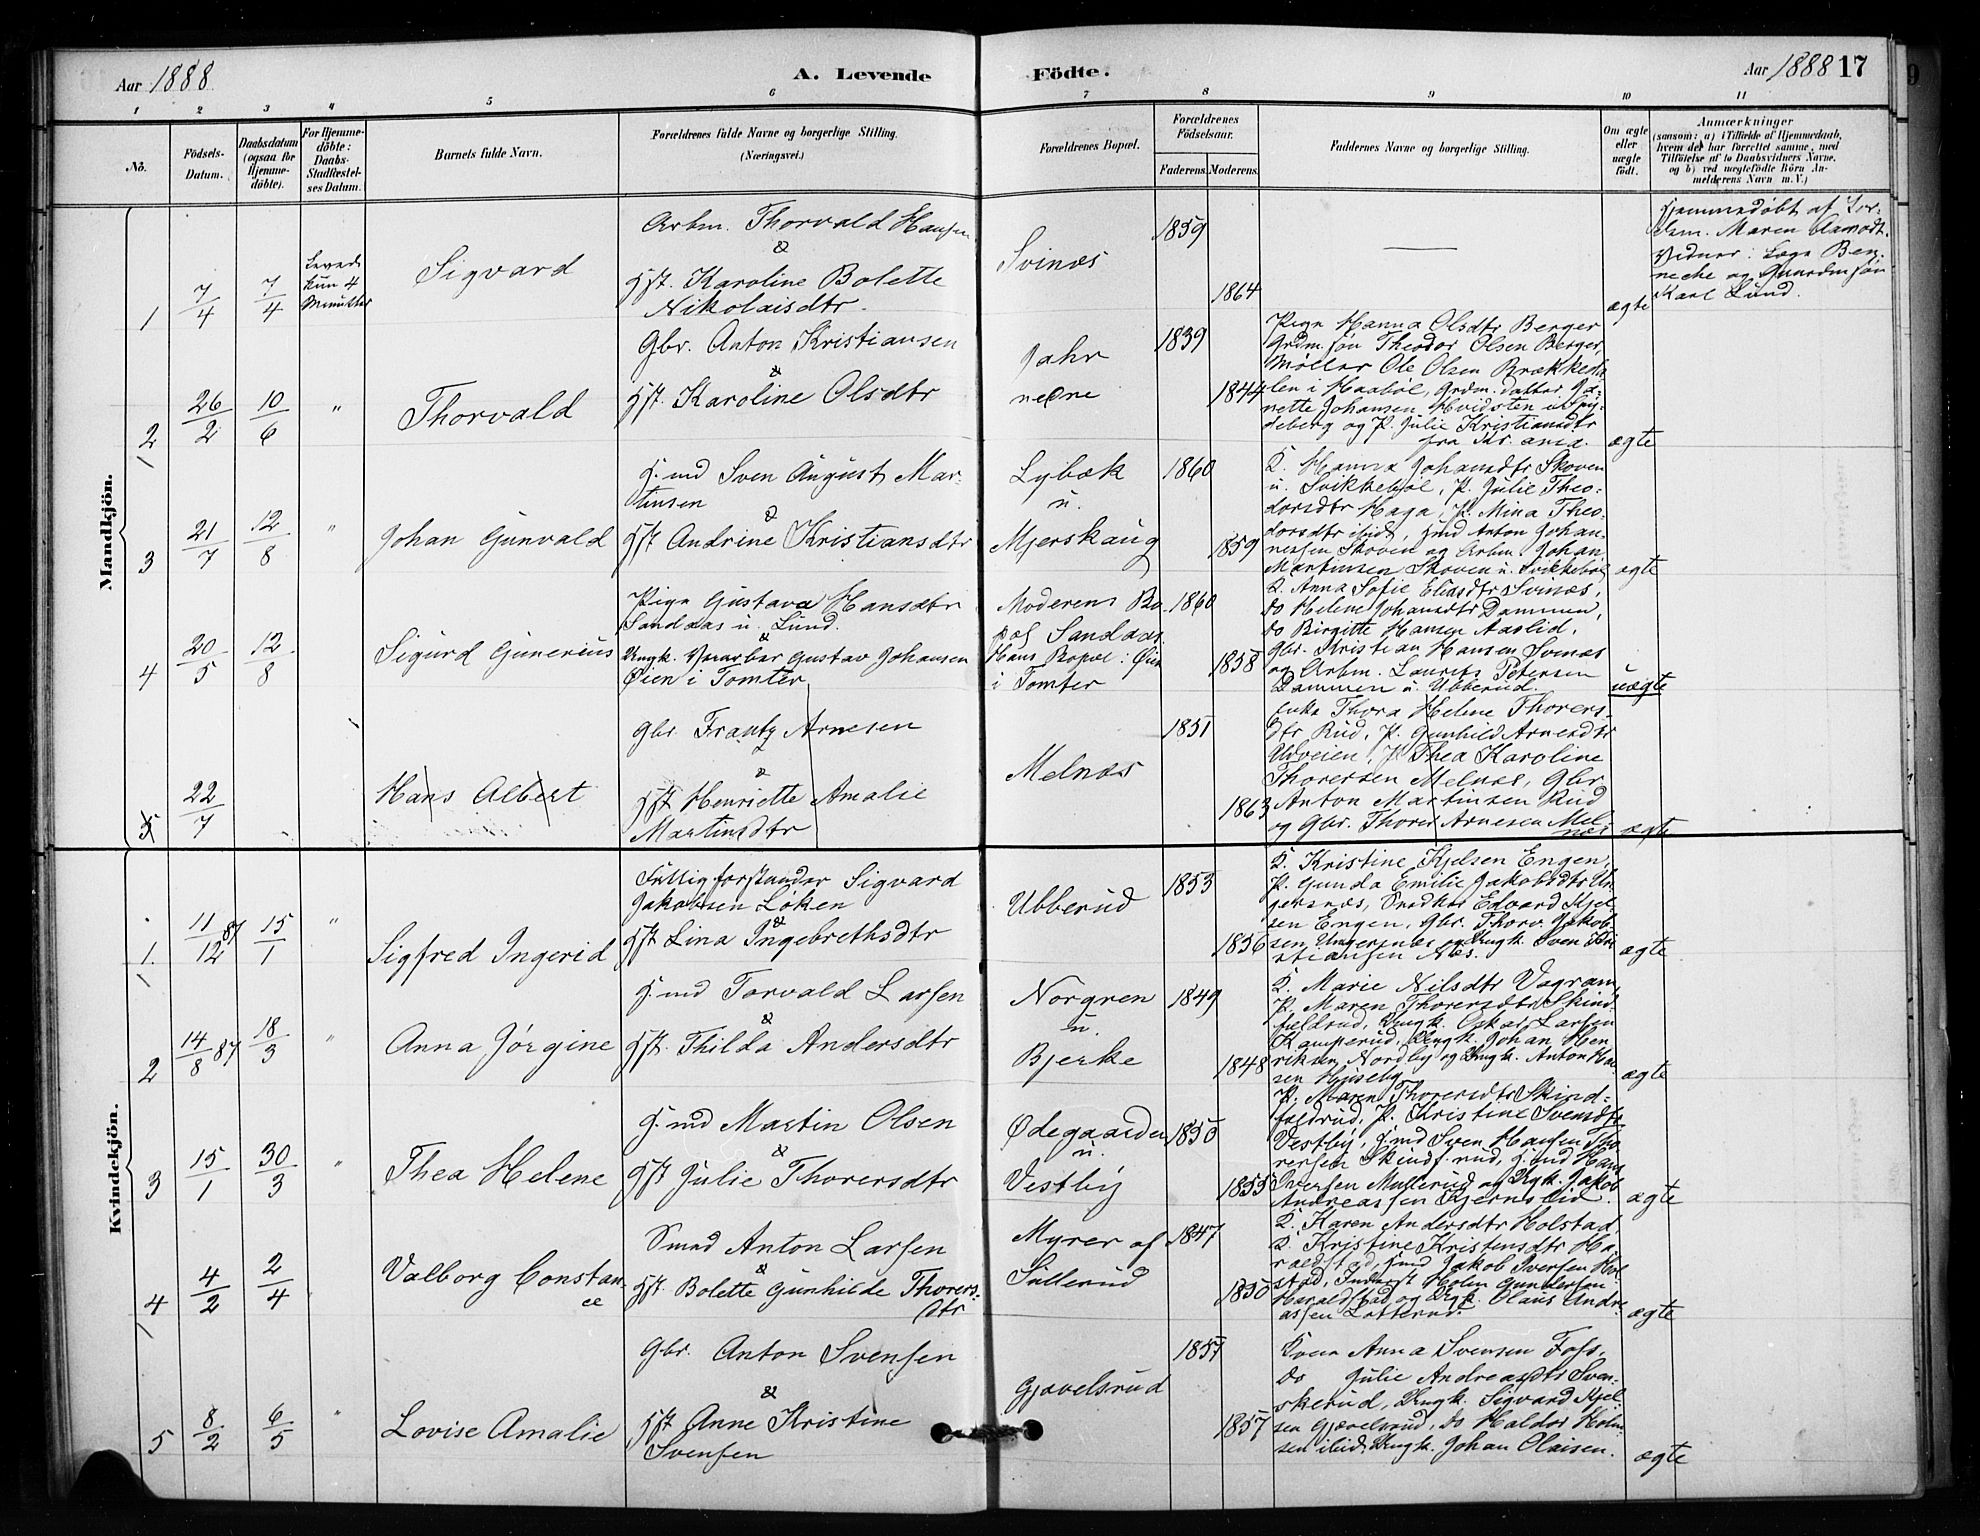 Aar 1888.
A. Levende
Födte.
Aar 1888 17
1 2 3 4 5 6 7 8 9 10 11
No.
Födsels-
Datum.
Daabsdatum
(ogsaa for
Hjemme-
döbte).
For Hjemme-
döbte:
Daabs-
Stadfæstel-
ses Datum.
Barnets fulde Navn.
Forældrenes fulde Navne og borgerlige Stilling.
(Næringsvei.)
Forældrenes Bopæl.
Forældrenes
Födselsaar.
Faderens. Moderens.
Faddernes Navne og borgerlige Stilling.
Om ægte
eller
uægte
födt.
Anmærkninger
(saasom: a) i Tilfælde af Hjemmedaab,
hvem der har forrettet samme, med
Tilföielse af to Daabsvidners Navne,
og b) ved uægtefödte Börn An-
melderens Navn m. V.)
Mandkjön.
1
7/4
7/4
Levede
kun 4
Minutter
Sigvard
Arbm. Thorvald Hansen
&
Hst. Karoline Bolette
Nikolaisdtr.
Svinæs
1859
1864
ægte
Hjemmedøbt af Jor-
dem. Maren Aamodt.
Vidner: Lage Ben-
neche og Gaardmsøn
Karl Lund.
2
26/2
10/6
"
Thorvald
Gbr. Anton Kristiansen
&
Hst. Karoline Olsdtr
Jahr
nedre
1839
1844
Pige Hanna Olsdtr Berger
Grdm.søn Theodor Olsen Berger,
Møller Ole Olsen Brækkeda-
len i Haabøl, Grdm. datter Ja-
nette Johansen Hvidsten i Spy-
deberg og P. Julie Kristiansdtr
fra Kr.ania.
ægte
3
21/7
12/8
"
Johan Gunvald
H.md Sven August Mar-
tinsen
&
Hst Andrine Kristiansdtr
Lybæk
u.
Mjerskaug
1860
1859
K. Hanna Johansdtr Skoven
u. Svikkebøl, P. Julie Theo-
dorsdtr Haga, P. Mina Theo-
dorsdtr ibid, Hmd Anton Johan-
nessen Skoven og Arbm. Johan
Martinsen Skoven u. Svikkebøl
ægte
4
20/5
12/8
Sigurd Gunerius
Pige Gustava Hansdtr
Sandaas u. Lund.
&
Ungk. Gustav Johansen
Øien i Tomter
Moderens Bo-
pæl Sandaas.
Hans Bopæl: Øien
i Tomter
1860
1858
K. Anna Sofie Eliasdtr Svinæs,
do Helene Johansdtr Dammen,
do Birgitte Hansen Aaslid,
Gbr. Kristian Hansen Svinæs
og Arbm. Laurits Petersen
Dammen u. Ubberud.
uægte
5
22/7
Hans Albert
Gbr. Frantz Arnesen
&
Hst Henriette Amalie
Martinsdtr
Melnæs
1851
1863
Enke Thora Helene Thorers-
dtr Rud, P. Gunhild Arnesdtr
Udveien, P. Thea Karoline
Thoresen Melnæs, Gbr.
Anton Martinsen Rud
og Gbr. Thorer Arnesen Mel-
næs
ægte
Kvindekjön.
1.
11/12 87
15/1
"
Sigfred Ingerid
Fattigforstander Sigvard
Jakobsen Løken
&
Hst Lina Ingebrethsdtr
Ubberud
1853
1856
K. Kristine Kjelsen Engen,
P. Gunda Emilie Jakobsdtr Un-
gersnæs, Snedker Edvard Kjel-
sen Engen, Gbr. Thorv. Jakob-
sen Ungersnes og Ungk. Sven Kri-
stiansen Næs.
ægte
2
14/8 87
18/3
"
Anna Jørgine
H.md Torvald Larsen
&
Hst. Thilda Andersdtr
Norgren
u.
Bjerke
1849
1848
K. Marie Nilsdtr Vagram,
P. Maren Thorersdtr Skind-
fældrud, Ungk. Oskar Larsen
Kamperud, Ungk. Johan Hen-
riksen Nordby og Ungk. Anton Han-
sen Huseby
ægte
3
15/1
30/3
"
Thea Helene
H.md Martin Olsen
&
Hst Julie Thorersdtr
Ødegaarden
u.
Vestby
1850
1855
P. Maren Thorersdtr Skind-
fældrud, P. Kristine Svensdtr
Vestby, Hmd Sven Hansen Tho-
rersen Skindf.rud, Hmd Hans
Iversen Mullerud og Ungk. Jakob
Andreassen Kjernslid.
ægte
4
4/2
2/4
Valborg Constan-
ce
Smed Anton Larsen
&
Hst. Bolette Gunhilde Thorers-
dtr
Myrer af
Sullerud
1847
1850
K. Karen Andersdtr Holstad
K. Kristine Kristensdtr Ha-
raldstad, Hmd Jakob Iversen Hol-
stad, Holm Gundersen
Haraldstad og Ungk. Olaus Andre-
assen Lotterud.
ægte
5
8/2
6/5
"
Lovise Amalie
Gbr. Anton Svensen
&
Hst Anne Kristine
Svensen
Gjævelsrud
1857
1857
Kone Anna Svensen Foss,
do Julie Andreasdtr Sven-
skerud, Ungk. Sigvard Kjel-
sen Gjævelsrud, do Haldor Holm-
sen ibid, Ungk. Johan Olaisen.
ægte